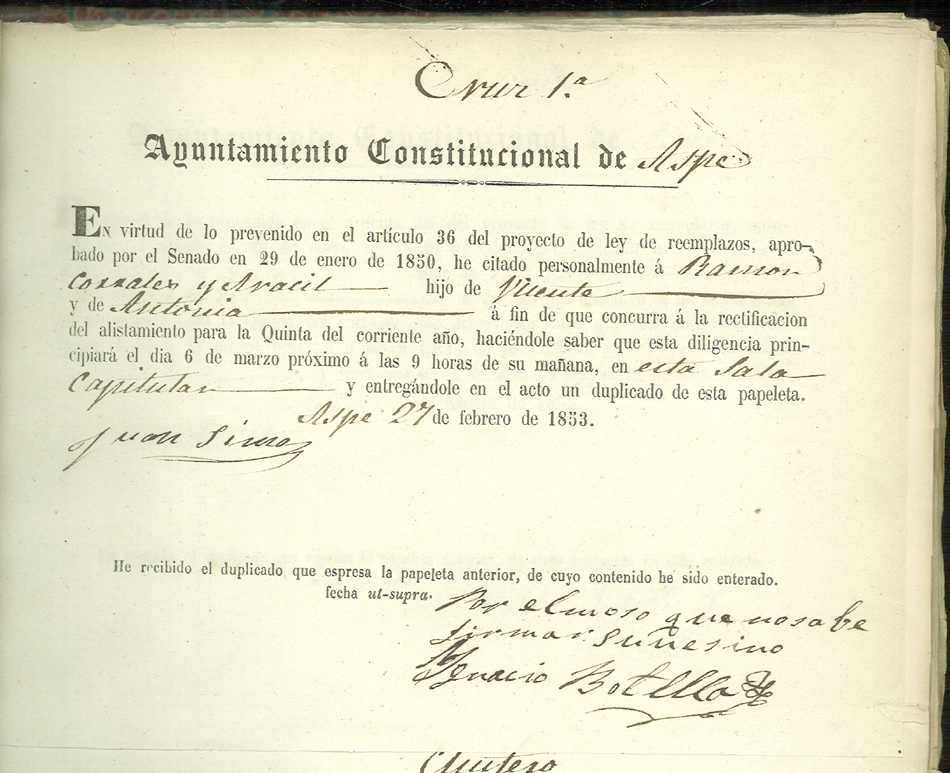 Cruz 1.ª
Ayuntamiento Constitucional de Aspe
En virtud de lo prevenido en el artículo 36 del proyecto de ley de reemplazos, apro-
bado por el Senado en 29 de enero de 1850, he citado personalmente á Ramon
Corrales y Aracil hijo de Vicente
y de Antonia á fin de que concurra á la rectificacion
del alistamiento para la Quinta del corriente año, haciéndole saber que esta diligencia prin-
cipiará el dia 6 de marzo próximo á las 9 horas de su mañana, en esta Sala
Capitular y entregándole en el acto un duplicado de esta papeleta.
Aspe 27 de febrero de 1853.
Juan Simo
He recibido el duplicado que espresa la papeleta anterior, de cuyo contenido he sido enterado.
fecha ut-supra.
Por el moso que no sabe
firmar su vesino
Ygnacio Botella
Quitero